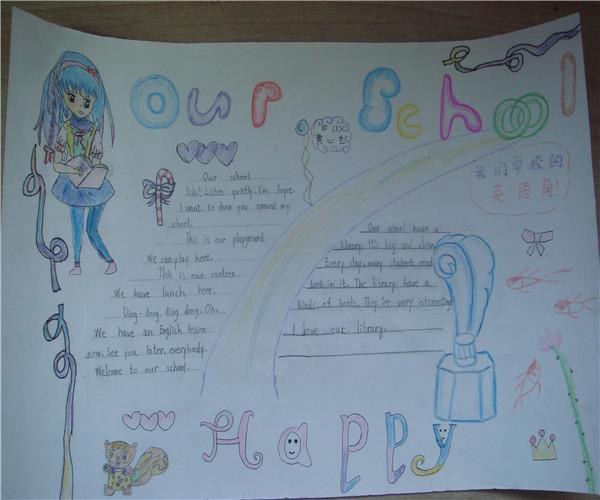 Our School
我们学校的
英语角!
Our school
Ssh! Listen quietly. I'm Joyce.
I want to show you around my
school.
This is our playground.
We can play here.
This is our canteen.
We have lunch here.
Ding-dong, ding dong. Oh,
We have an English lesson
now. See you later, everybody.
Welcome to our school.
Our school have a
library. It's big and clean.
Every day, many students read
book in it. The library have a
kinds of books. They're very interesting
I love our library.
Happy